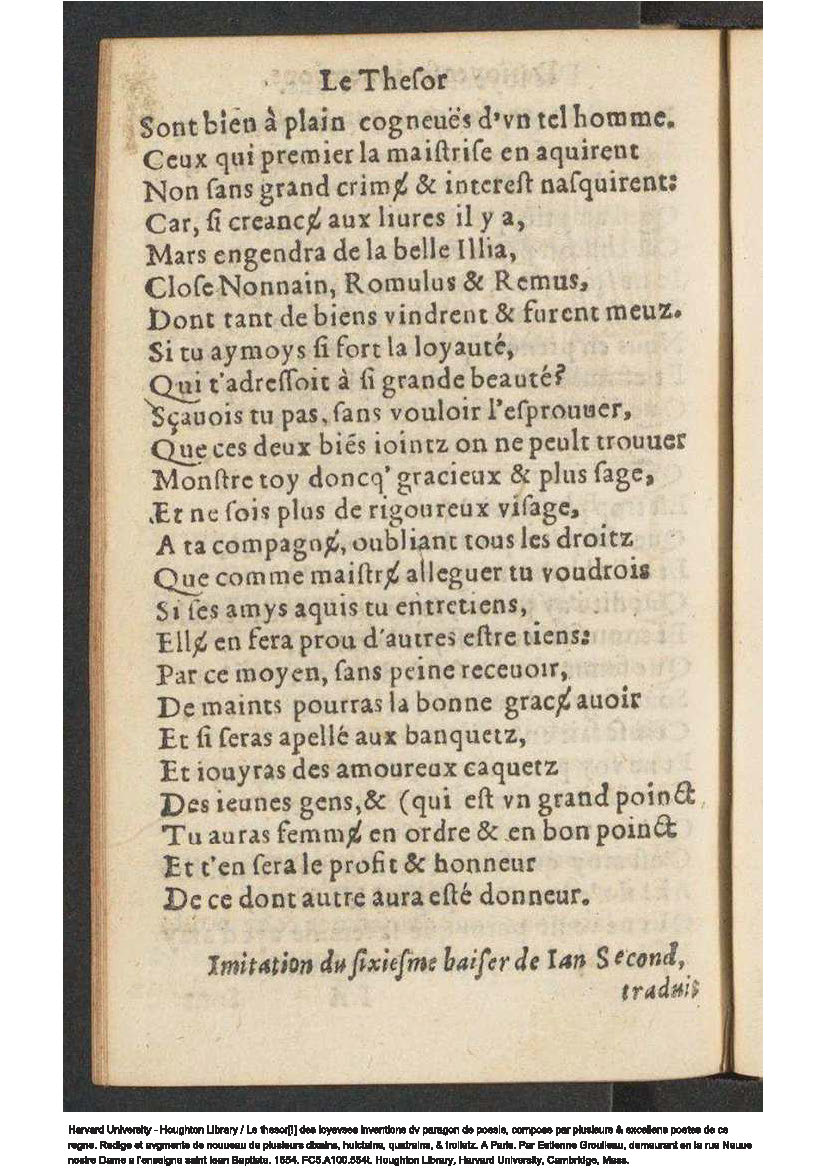 Le Theſor
Sont bien à plain cogneuës d'vn tel homme.
Ceux qui premier la maiſtriſe en aquirent
Non ſans grand crimɇ & intereſt naſquirent:
Car, ſi creancɇ aux liures il y a,
Mars engendra de la belle Illia,
Cloſe Nonnain, Romulus & Remus,
Dont tant de biens vindrent & furent meuz.
Si tu aymoys ſi fort la loyauté,
Qui t'adreſſoit à ſi grande beauté?
Sçauois tu pas, ſans vouloir l'eſprouuer,
Que ces deux biés iointz on ne peult trouuer
Monſtre toy doncq' gracieux & plus ſage,
Et ne ſois plus de rigoureux viſage,
A ta compagnɇ, oubliant tous les droitz
Que comme maiſtrɇ alleguer tu voudrois
Si ſes amys aquis tu entretiens,
Ellɇ en fera prou d'autres eſtre tiens:
Par ce moyen, ſans peine receuoir,
De maints pourras la bonne gracɇ auoir
Et ſi ſeras apellé aux banquetz,
Et iouyras des amoureux caquetz
Des ieunes gens,& (qui eſt vn grand poinct,
Tu auras femmɇ en ordre & en bon poinct
Et t'en ſera le profit & honneur
De ce dont autre aura eſté donneur.
Imitation du ſixieſme baiſer de Ian Second,
traduis
Harvard University - Houghton Library / Le thesor[!] des ioyevses inventions dv paragon de poesie, compose par plusieurs & excellens poetes de ce
regne. Redige et avgmente de nouueau de plusieurs dixains, huictains, quatrains, & triolletz. A Paris. Par Estienne Groulleau, demeurant en la rue Neuue
nostre Dame a l'enseigne saint Iean Baptiste. 1554. FC5.A100.554t. Houghton Library, Harvard University, Cambridge, Mass.